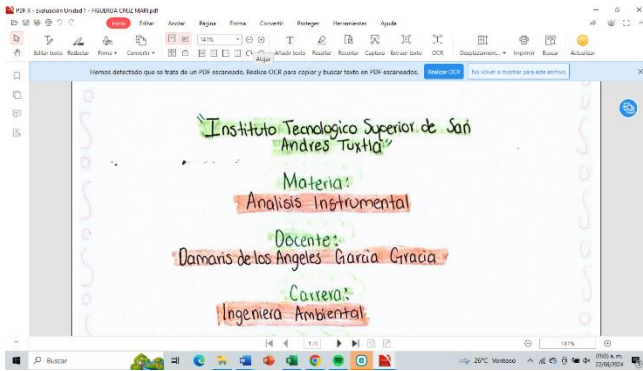 PDF X - Evaluación Unidad 1 - FIGUEROA CRUZ MARI.pdf
Inicio Editar Anotar Página Forma Convertir Proteger Herramientas Ayuda
141%
Editar texto Redactar Firma Convertir Alejar Añadir texto Resaltar Recortar Captura Extraer texto OCR Desplazamient... Imprimir Buscar Actualizar
Hemos detectado que se trata de un PDF escaneado. Realice OCR para copiar y buscar texto en PDF escaneados. Realizar OCR No volver a mostrar para este archivo
"Instituto Tecnologico Superior de San
Andres Tuxtla"
Materia:
Analisis Instrumental
Docente:
Damaris de los Angeles Garcia Gracia
Carrera:
Ingeniera Ambiental
141%
Buscar 26°C Ventoso 01:03 a.m.
22/06/2024